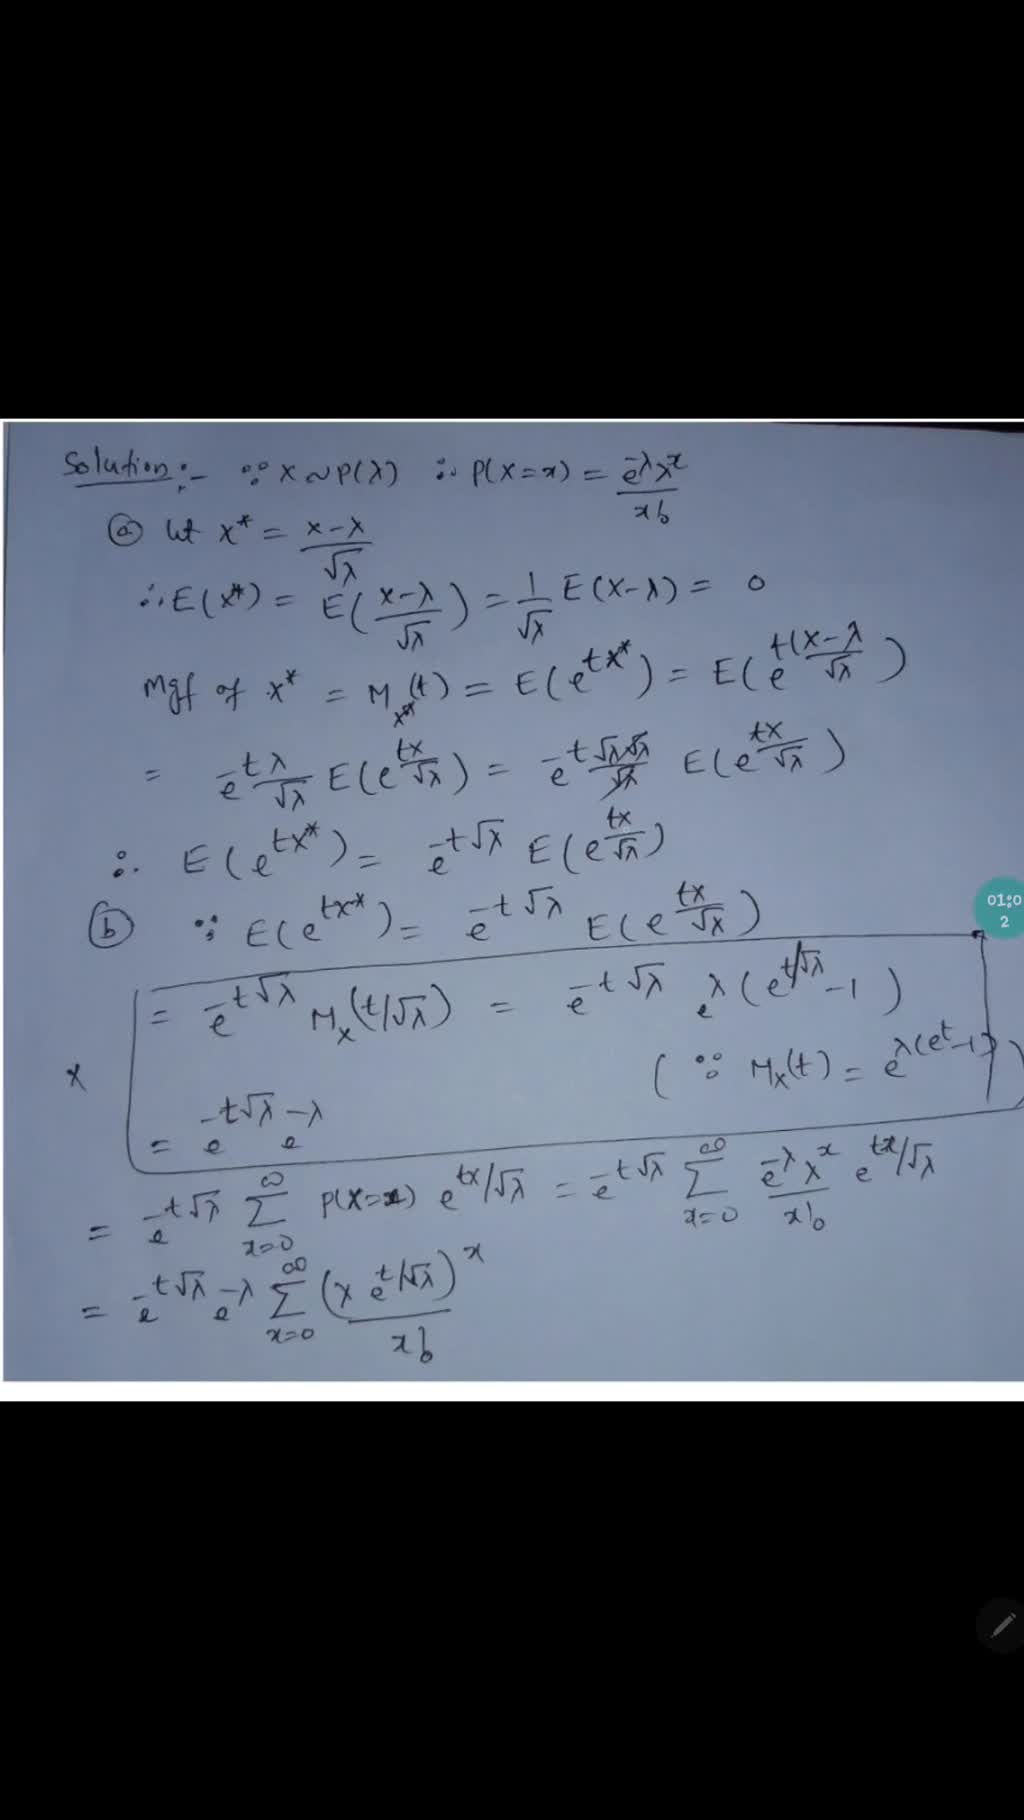 Solution:- ∵ X ~ P(λ) ∴ P(X=x) = e^-λ λ^x / x!
(a) let X* = (X-λ)/√λ
∴ E(X*) = E((X-λ)/√λ) = 1/√λ E(X-λ) = 0
Mgf of X* = M_X*(t) = E(e^tX*) = E(e^t(X-λ/√λ)
= e^-tλ/√λ E(e^tX/√λ) = e^-t√λ√λ/√λ E(e^tX/√λ)
∴ E(e^tX*) = e^-t√λ E(e^tX/√λ)
(b) ∵ E(e^tX*) = e^-t√λ E(e^tX/√λ)
= e^-t√λ M_X(t/√λ) = e^-t√λ e^λ(e^t/√λ -1)
x (∵ M_X(t) = e^λ(e^t-1))
= e^-t√λ e^-λ
= e^-t√λ ∑_{x=0}^∞ P(X=x) e^tx/√λ = e^-t√λ ∑_{x=0}^∞ e^-λ λ^x / x! e^tx/√λ
= e^-t√λ e^-λ ∑_{x=0}^∞ (λ e^t/√λ)^x / x!
01:0
2